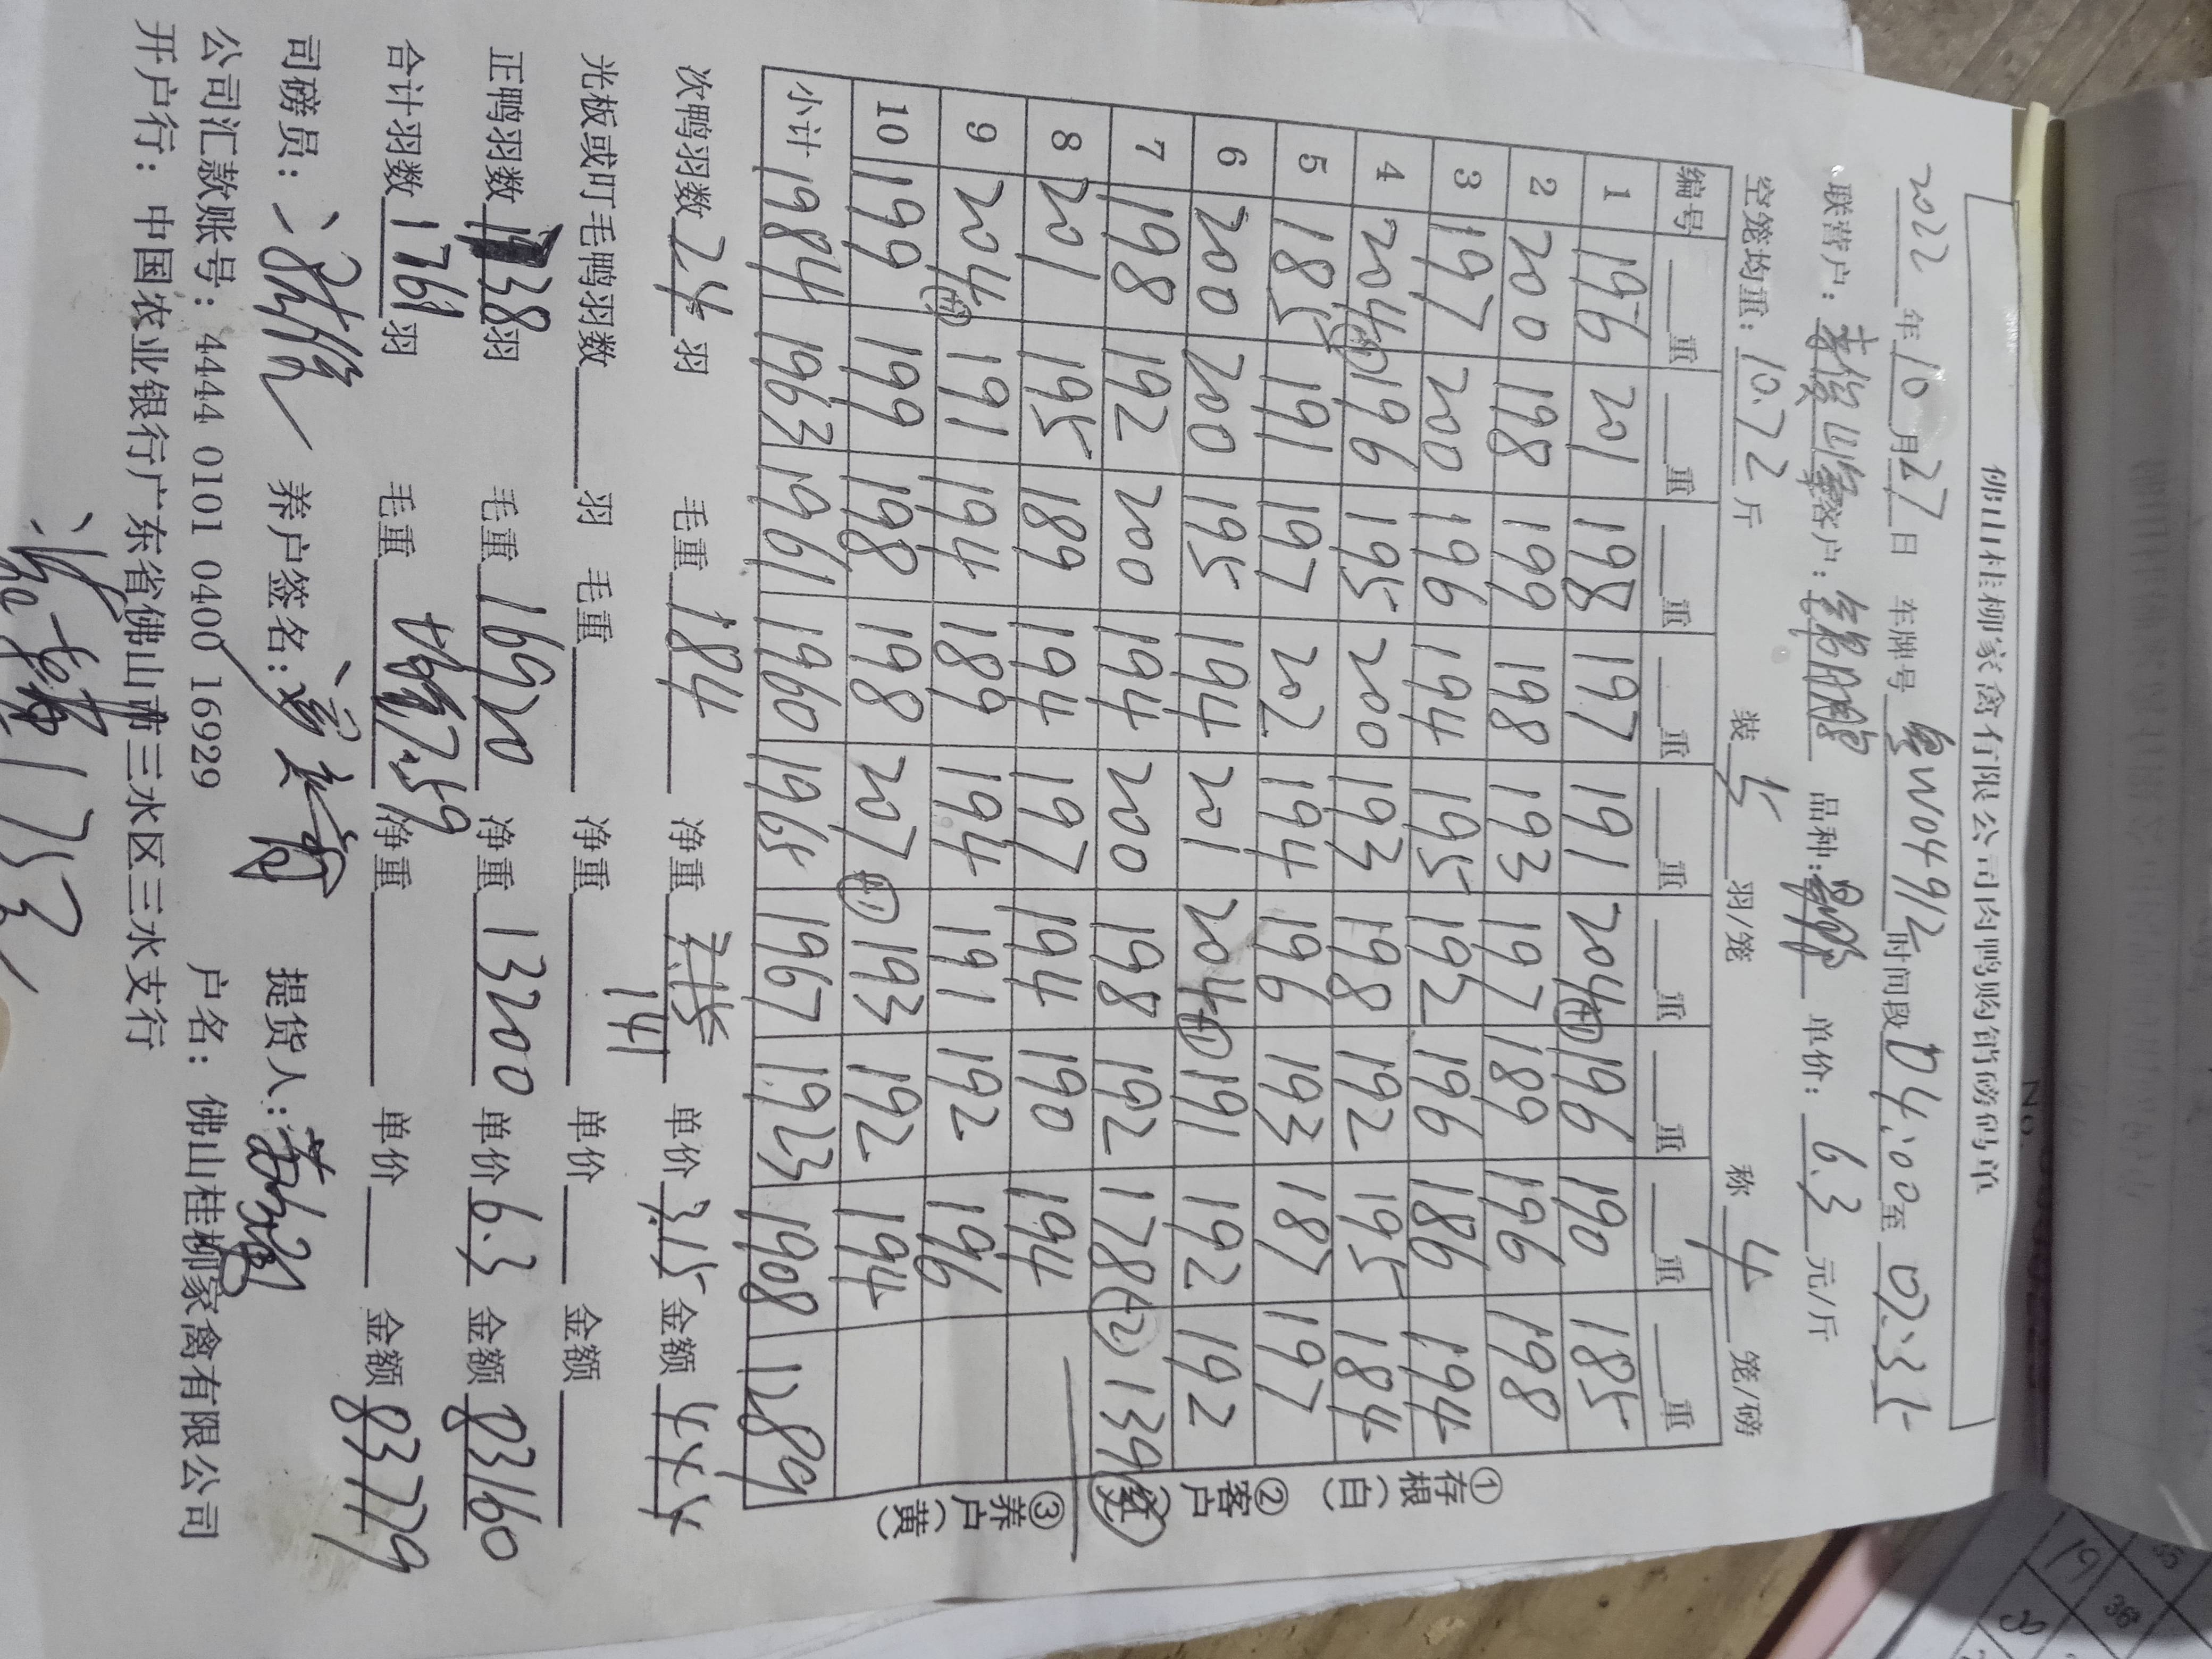 佛山桂柳家禽有限公司肉鸭购销磅码单
No
2022年10月27日 车牌号粤W04912时间段04:00至07:35
联营户: 客户: 品种: 单价: 6.3元/斤
空笼均重: 10.72斤 装5羽/笼 称4笼/磅
编号 重 重 重 重 重 重 重 重 重
1 196 201 198 197 191 204 196 190 185
2 200 198 199 198 193 197 189 196 198
3 197 200 196 194 195 192 196 186 194
4 204 196 195 200 193 198 192 195 184
5 185 191 197 202 194 196 193 187 197
6 200 200 195 194 201 204 191 192 192
7 198 192 200 194 200 198 192 178 139
8 201 195 189 194 197 194 190 194
9 204 191 194 189 194 191 192 196
10 199 199 198 198 207 193 192 194
小计 1984 1963 1961 1960 1965 1967 1923 1908 1289
①存根(白) ②客户(红) ③养户(黄)
次鸭羽数24羽 毛重184 净重 141 单价3.15 金额444
光板或叮毛鸭羽数 羽 毛重 净重 单价 金额
正鸭羽数1738羽 毛重16920 净重13200 单价6.3 金额83160
合计羽数1761羽 毛重 净重 单价 金额
司磅员: 养户签名: 提货人:
公司汇款账号: 4444 0101 0400 16929 户名: 佛山桂柳家禽有限公司
开户行: 中国农业银行广东省佛山市三水区三水支行